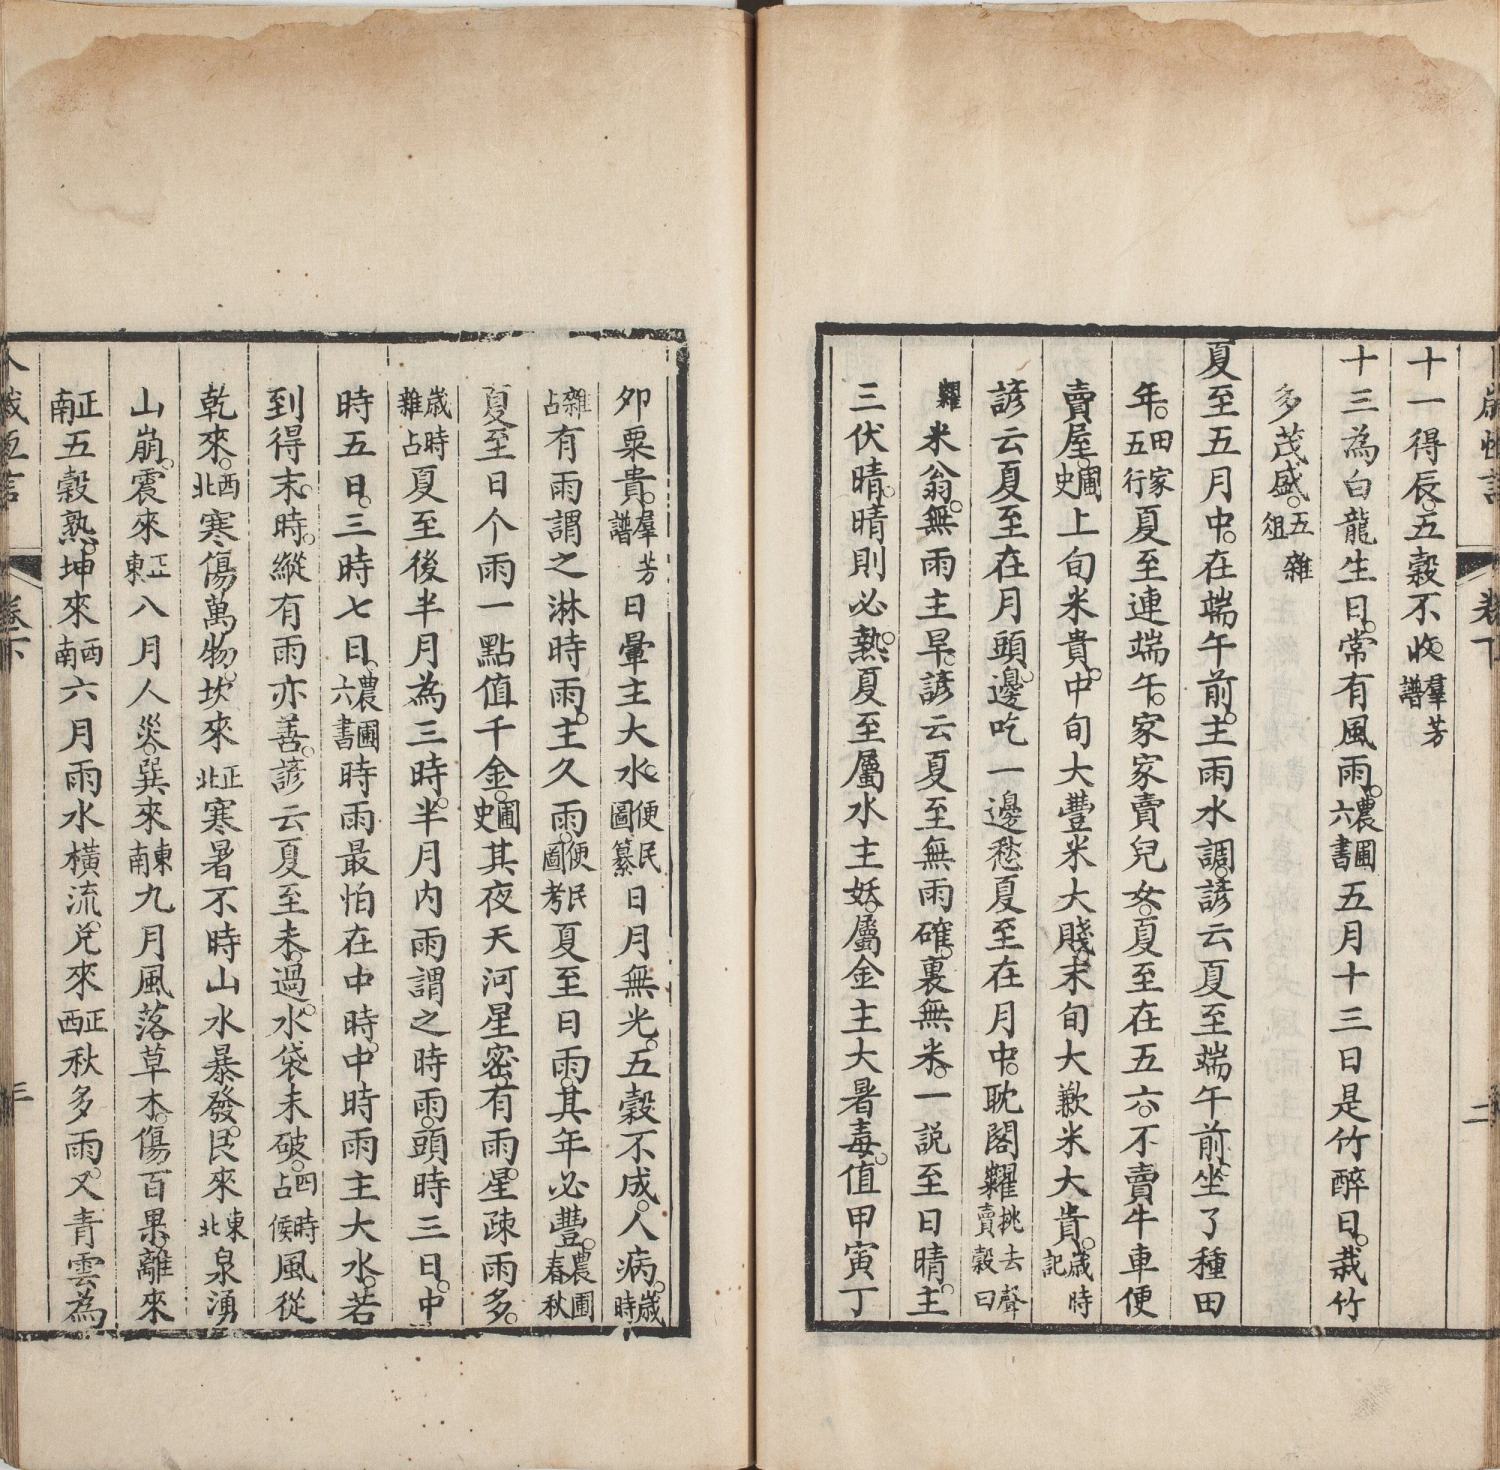 十一得辰。五穀不收。羣芳譜
十三為白龍生日。常有風雨。農圃六書五月十三日是竹醉日。栽竹
多茂盛。五雜俎
夏至五月中。在端午前。主雨水調。諺云夏至端午前。坐了種田
年。田家五行夏至連端午。家家賣兒女。夏至在五六。不賣牛車便
賣屋。圃史上旬米貴。中旬大豐米大賤。末旬大歉米大貴。歲時記
諺云夏至在月頭。邊吃一邊愁。夏至在月中。耽閣糶挑去聲賣穀曰
糶米翁。無雨主旱。諺云夏至無雨。確裏無米。一說至日晴。主
三伏晴。晴則必熱。夏至屬水主妖。屬金主大暑毒。值甲寅丁
卯粟貴。羣芳譜日暈主大水。便民圖纂日月無光。五穀不成。人病。歲時
雜占有雨謂之淋時雨。主久雨。便民圖考夏至日雨。其年必豐。農圃春秋
夏至日个雨一點值千金。圃史其夜天河星密有雨。星疎雨多。
歲時雜占夏至後半月為三時。半月内雨謂之時雨。頭時三日。中
時五日。三時七日。農圃六書時雨最怕在中時。中時雨主大水。若
到得末時。縱有雨亦善。諺云夏至未過。水袋未破。四時占候風從
乾來。西北寒傷萬物。坎來正北寒暑不時山水暴發。艮來東北泉湧
山崩。震來正東八月人災。巽來東南九月風落草木。傷百果。離來
正南五穀熟。坤來西南六月雨水橫流。兌來正西秋多雨。又青雲為
卷下
卷下
二